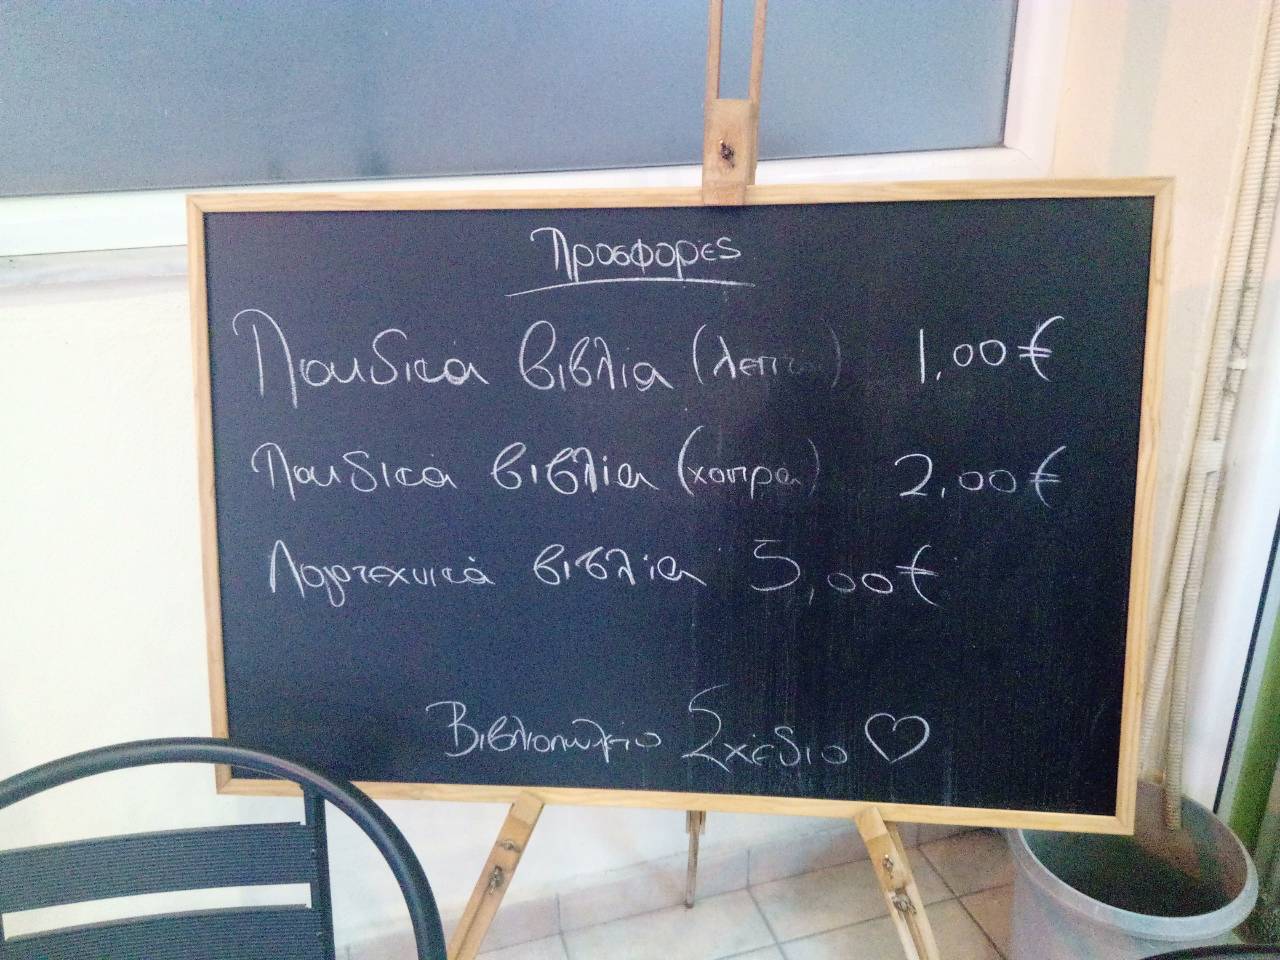 Προσφορές
Παιδικά βιβλία (λεπτά) 1,00€
Παιδικά βιβλία (χοντρα) 2,00€
Λογοτεχνικά βιβλία 5,00€
Βιβλιοπωλείο Σχέδιο